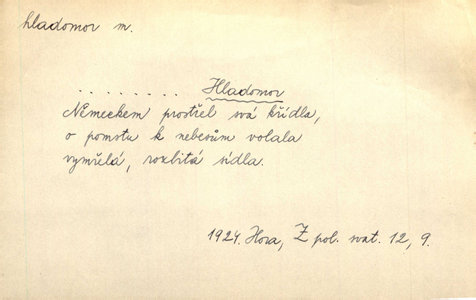 hladomor m.
. . . . . . . . Hladomor
Německem prostřel svá křídla,
o pomstu k nebesům volala
vymřelá, rozbitá sídla.
1924. Hora, Z pol. svat. 12, 9.